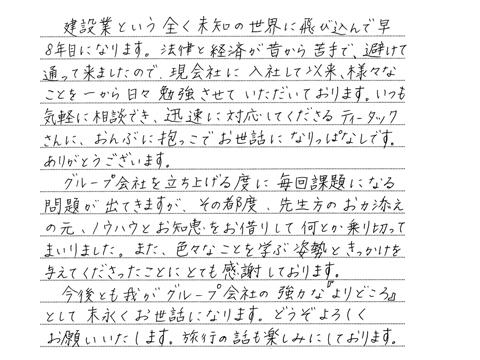 建設業という全く未知の世界に飛び込んで早
8年目になります。法律と経済が昔から苦手で、避けて
通って来ましたので、現会社に入社して以来、様々な
ことを一から日々勉強させていただいております。いつも
気軽に相談でき、迅速に対応してくださるティータック
さんに、おんぶに抱っこでお世話になりっぱなしです。
ありがとうございます。
グループ会社を立ち上げる度に毎回課題になる
問題が出てきますが、その都度、先生方のお力添え
の元、ノウハウとお知恵をお借りして何とか乗り切って
まいりました。また、色々なことを学ぶ姿勢ときっかけを
与えてくださったことにとても感謝しております。
今後とも我がグループ会社の強力な『よりどころ』
として末永くお世話になります。どうぞよろしく
お願いいたします。旅行の話も楽しみにしております。